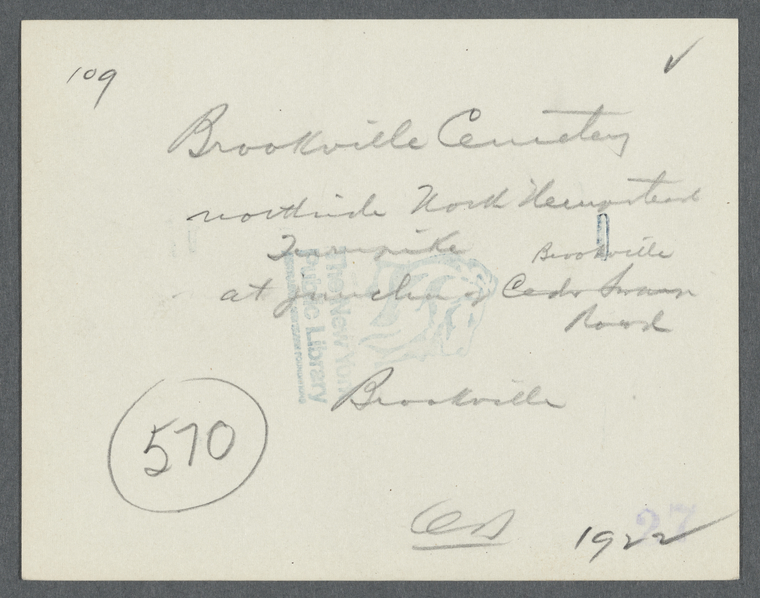 109
Brookville Cemetery
northside North Hempstead
Turnpike
Brookville
at junction of Cedar Swamp
Road
Brookville
570
1922
27
The New York
Public Library